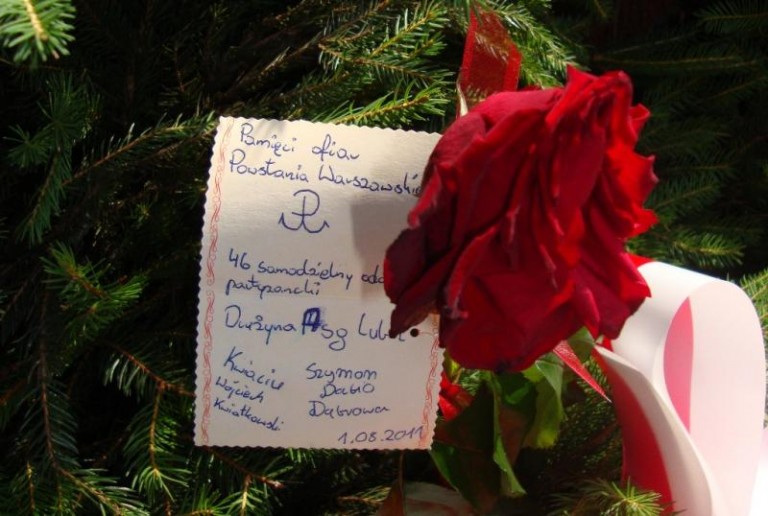 Pamięci ofiar
Powstania Warszawskie
46 samodzielny odd
partyzancki
Drużyna ASG Lub
Kwiaciu Szymon
Wójciech Dąbro
Kwiatkowski Dąbrowa
1.08.2011